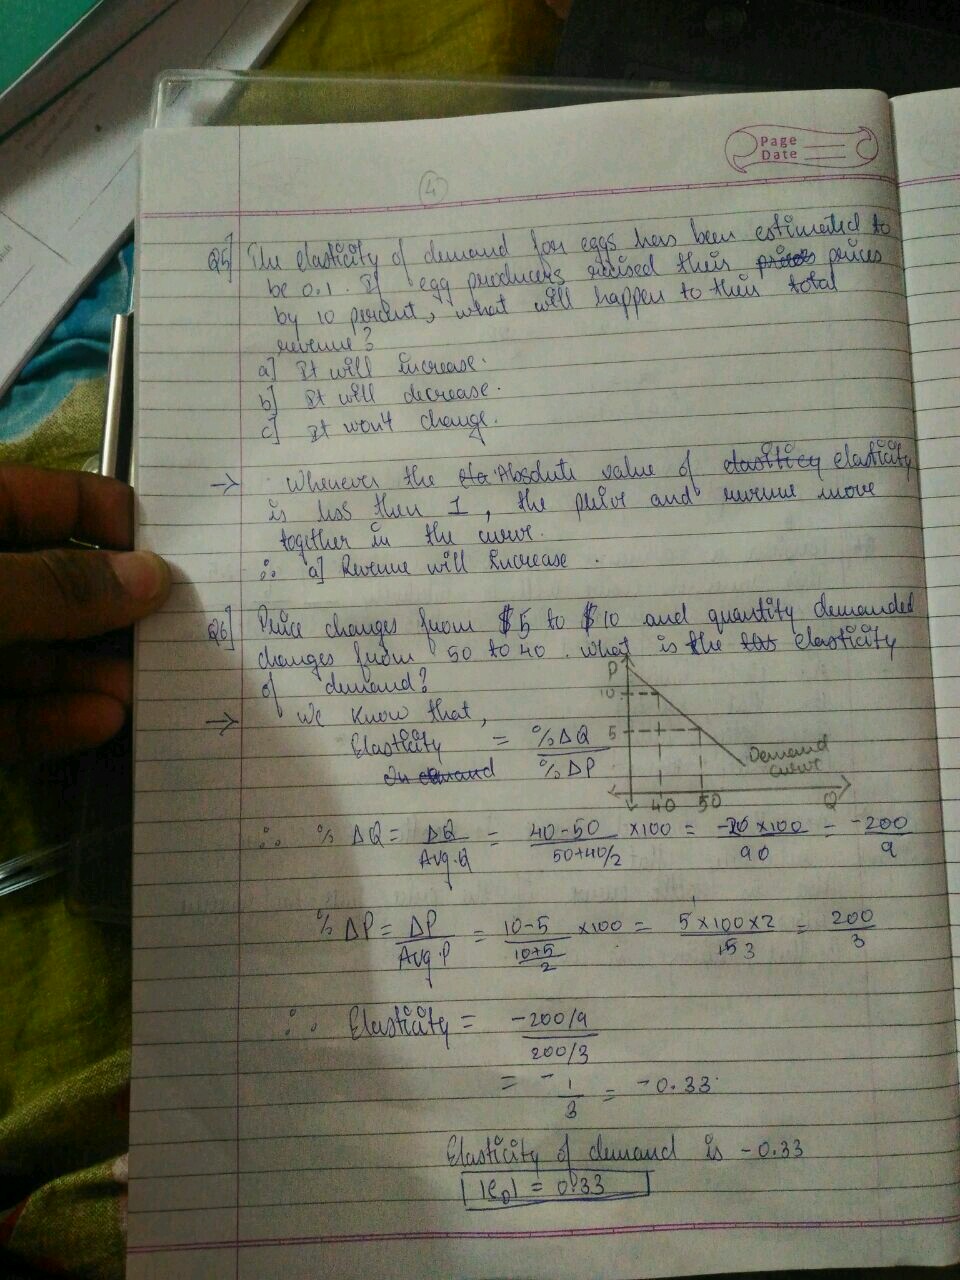 Page
Date
4
Q5] The elasticity of demand for eggs has been estimated to
be 0.1. If egg producers raised their prices prices
by 10 percent, what will happen to their total
revenue?
a] It will increase.
b] It will decrease.
c] It won't change.
→ Whenever the ela Absolute value of elasticity elasticity
is less then 1, the price and revenue move
together in the curve.
∴ a] Revenue will Increase.
Q6] Price changes from $5 to $10 and quantity demanded
changes from 50 to 40. What is the elasticity
of demand?
→ We know that,
Elasticity = %ΔQ / %ΔP
demand
P
10
5
40 50 Q
Demand curve
∴ % ΔQ = ΔQ / Avg.Q = 40-50 / 50+40/2 x100 = -20 x100 / 90 = -200 / 9
% ΔP = ΔP / Avg.P = 10-5 / 10+5/2 x100 = 5x100x2 / 15 3 = 200 / 3
∴ Elasticity = -200/9 / 200/3
= - 1 / 3 = -0.33
Elasticity of demand is -0.33
|eD| = 0.33